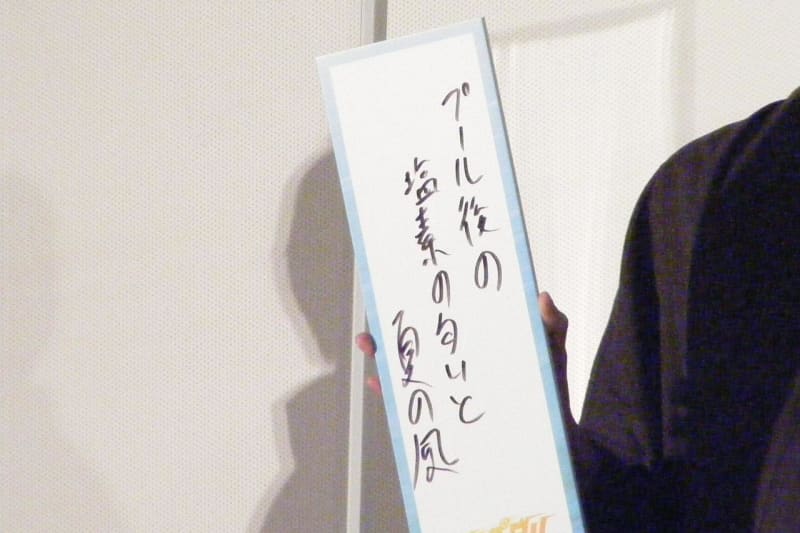 プール後の
塩素の匂いと
夏の風